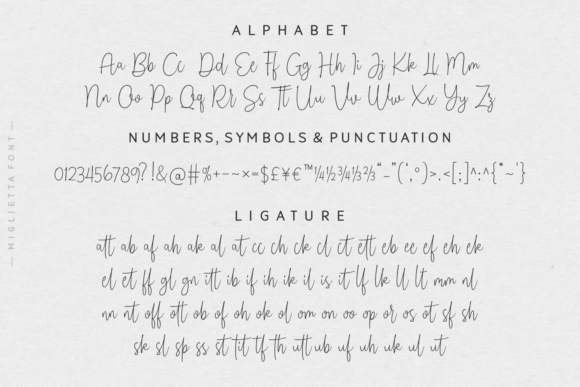 ALPHABET
Aa Bb Cc Dd Ee Ff Gg Hh Ii Jj Kk Ll Mm
Nn Oo Pp Qq Rr Ss Tt Uu Vv Ww Xx Yy Zz
NUMBERS, SYMBOLS & PUNCTUATION
0123456789?!&@#%+−~×=$£¥€™¼½¾⅓⅔“-”(‘,°)>.<[;]^:^{"~'}
LIGATURE
att ab af ah ak al at cc ch ck cl ct ett eb ee ef eh ek
el et ff gl gn itt ib if ih ik il is it lf lk ll lt mm nl
nn nt off ott ob of oh ok ol om on oo op or os ot sf sh
sk sl sp ss st tit tf th utt ub uf uh uk ul ut
— MIGLIETTA FONT —